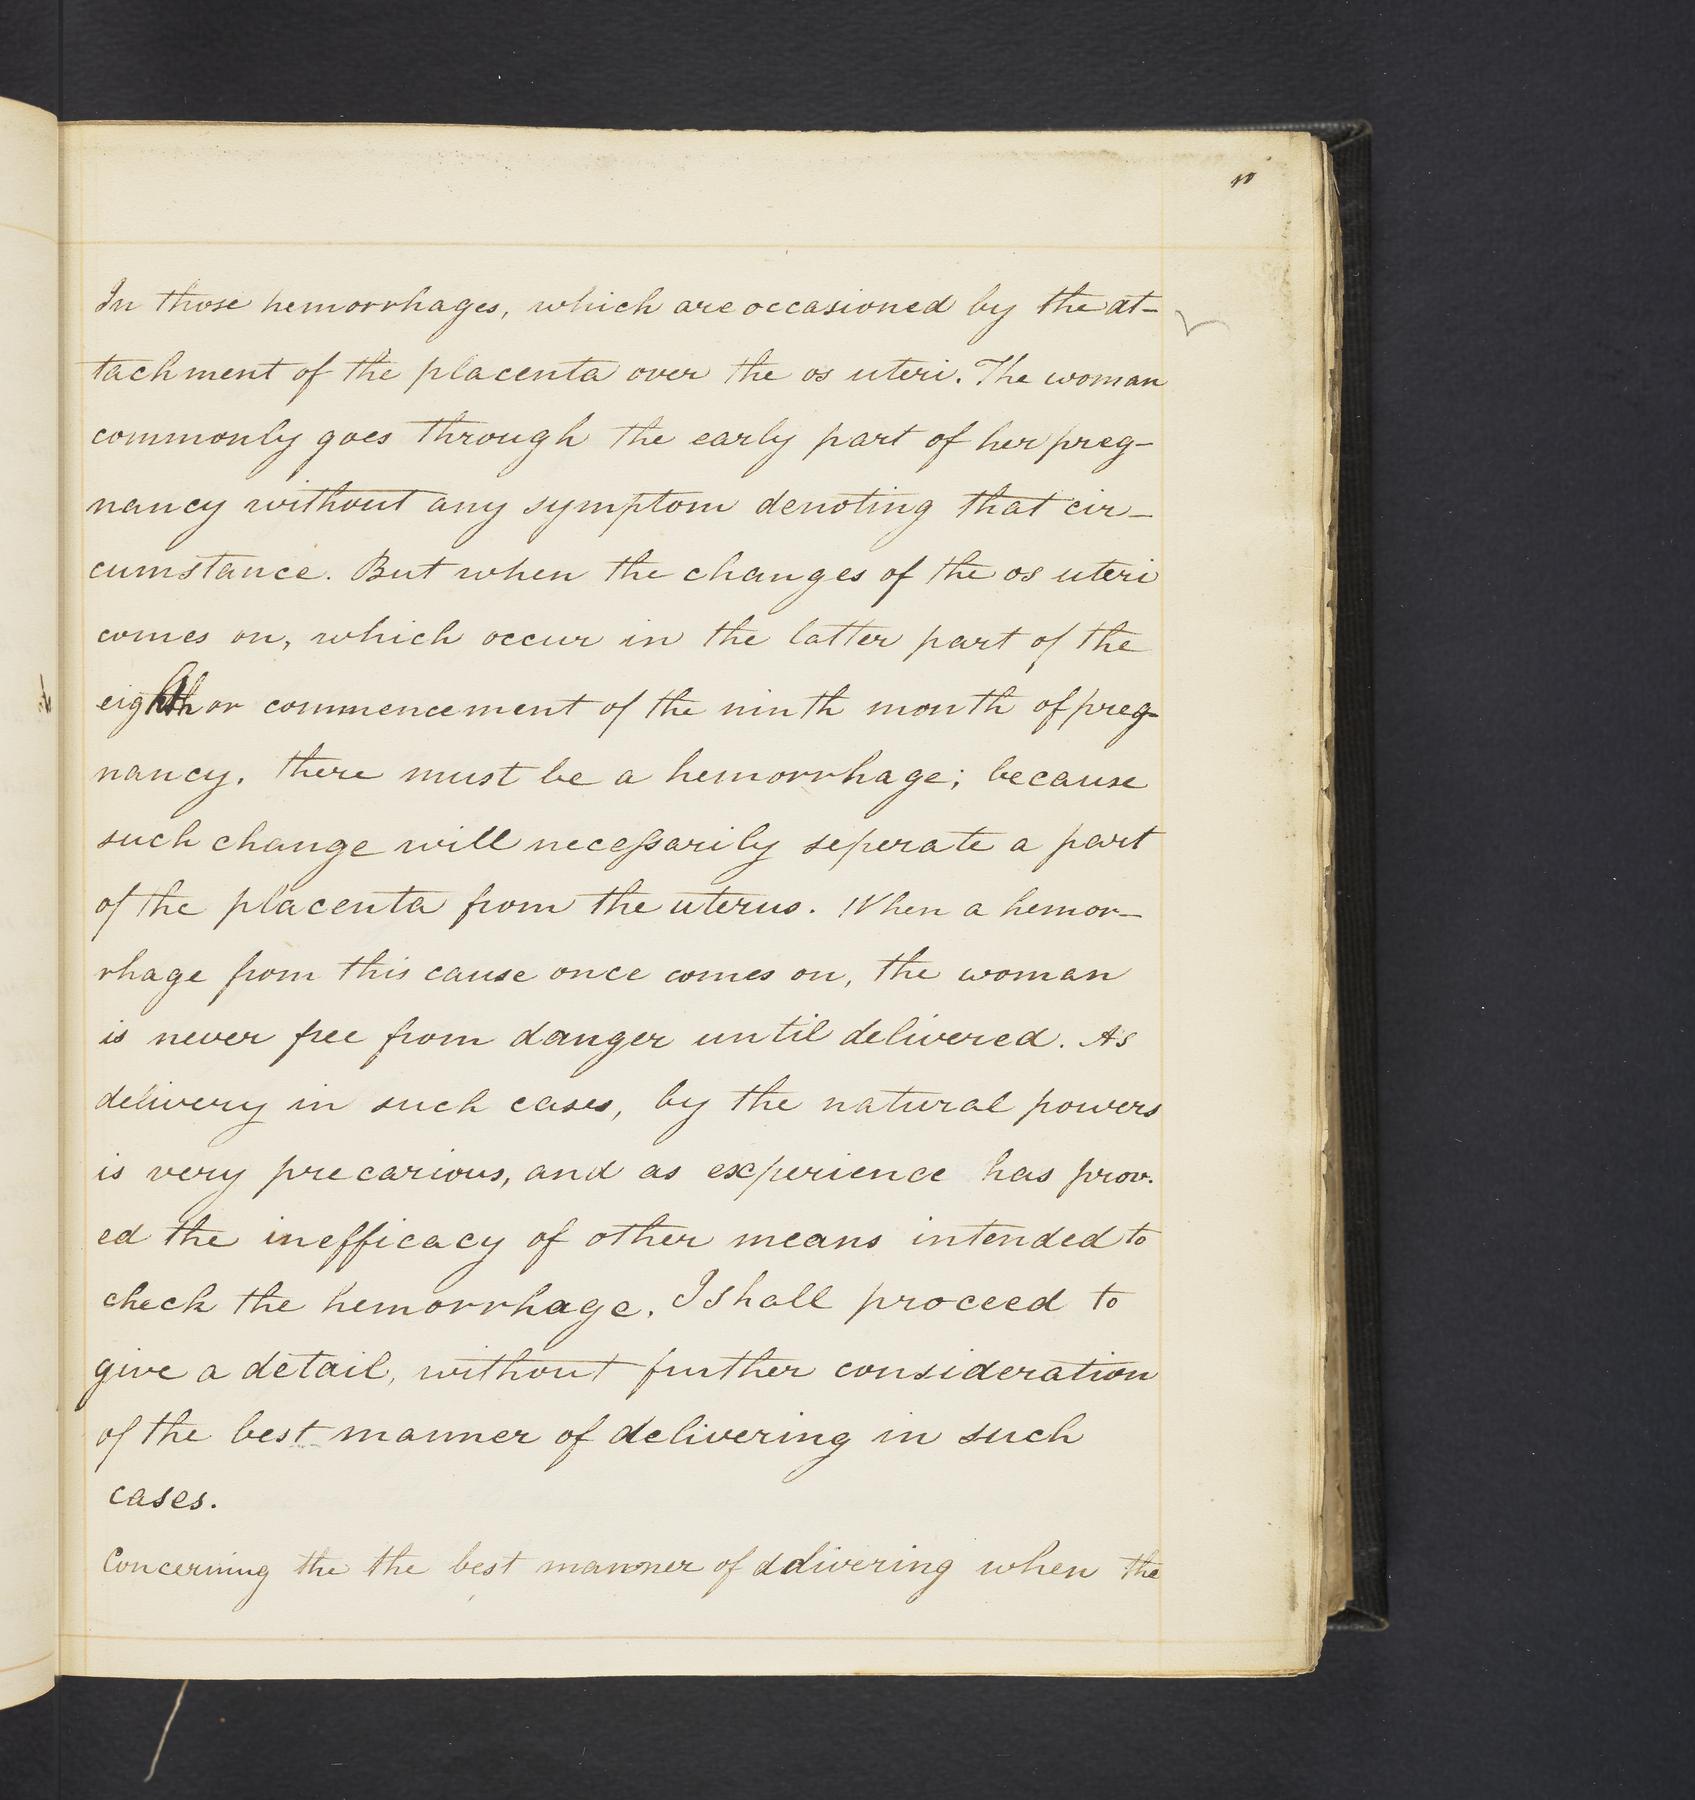 10
In those hemorrhages, which are occasioned by the at-
tachment of the placenta over the os uteri. The woman
commonly goes through the early part of her preg-
nancy without any symptom denoting that cir-
cumstance. But when the changes of the os uteri
comes on, which occur in the latter part of the
eighth or commencement of the ninth month of preg-
nancy, there must be a hemorrhage; because
such change will necessarily seperate a part
of the placenta from the uterus. When a hemor-
rhage from this cause once comes on, the woman
is never free from danger until delivered. As
delivery in such cases, by the natural powers
is very precarious, and as experience has prov-
ed the inefficacy of other means intended to
check the hemorrhage. I shall proceed to
give a detail, without further consideration
of the best manner of delivering in such
cases.
Concerning the the best manner of delivering when the